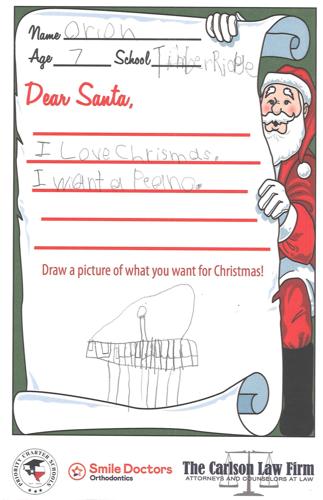 Name Orion
Age 7 School TimberRidge
Dear Santa,
I Love Chrismas.
I want a Peano.
Draw a picture of what you want for Christmas!
PRIORITY CHARTER SCHOOLS
Smile Doctors
Orthodontics
The Carlson Law Firm
ATTORNEYS AND COUNSELORS AT LAW